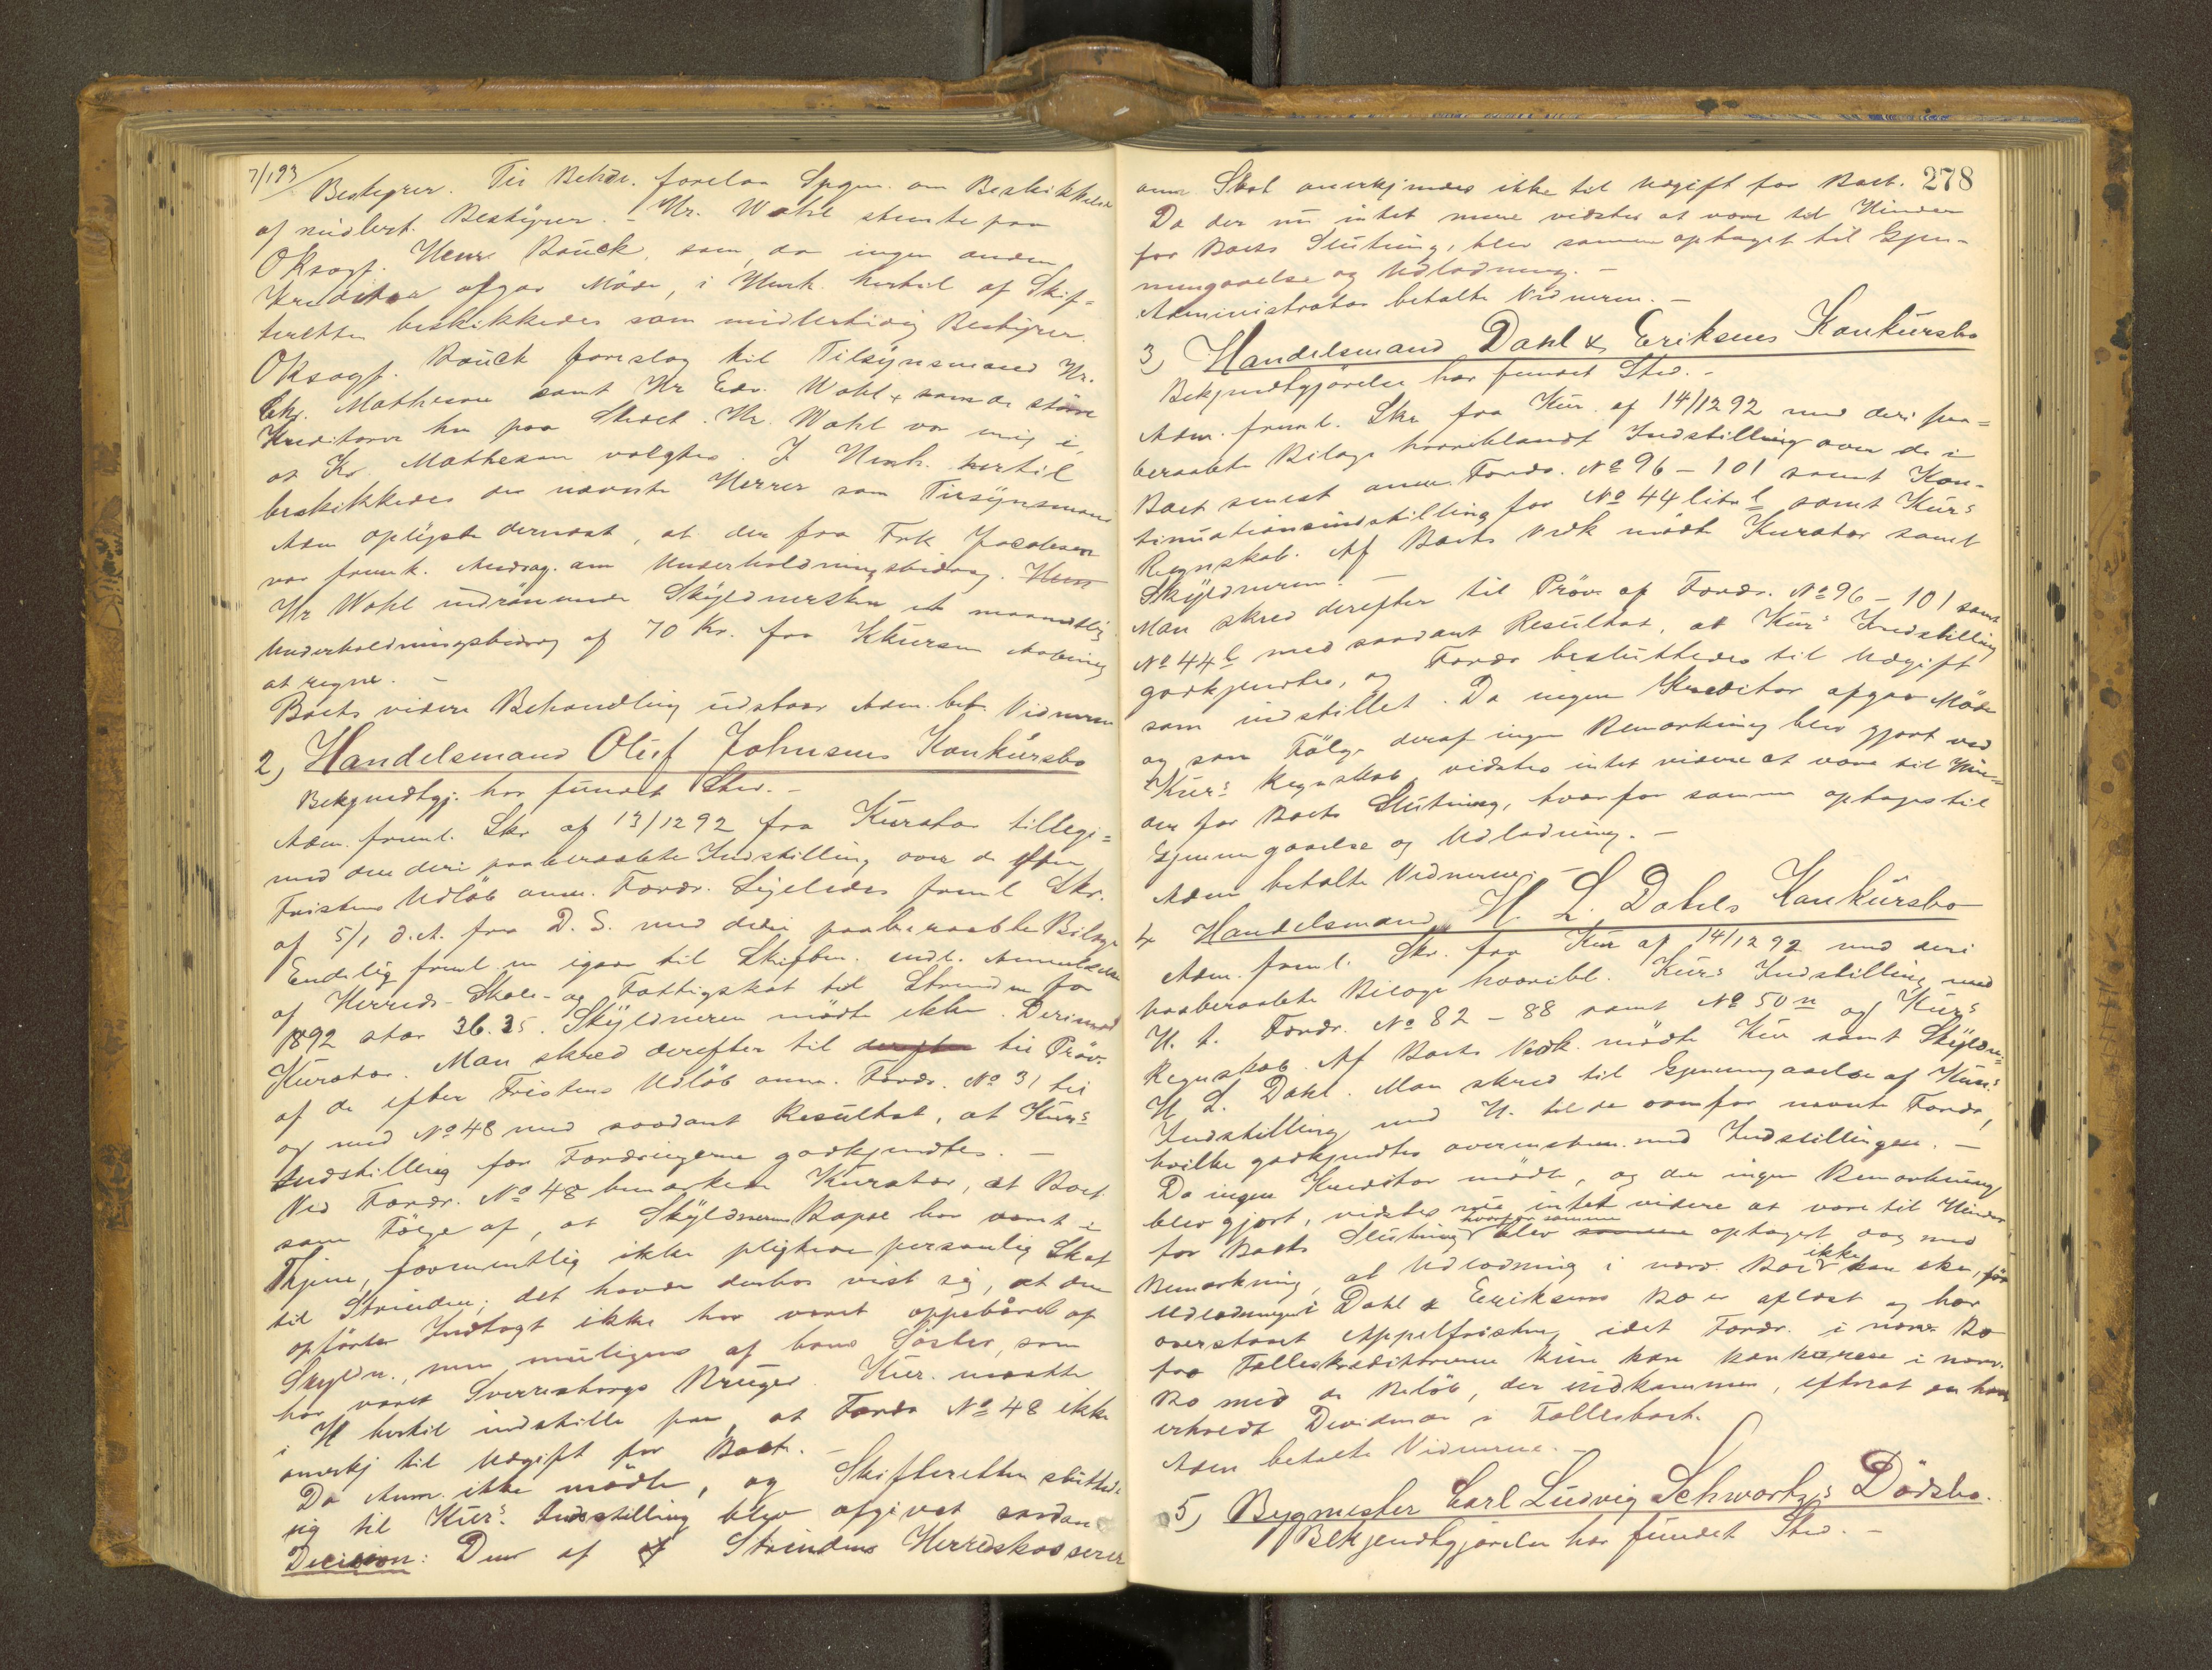 7/193
Bestyrer. Til Behdl. forelaa Spgm. om Beskikkelse
af midlert. Bestyrer. – Hr. Wahl stemte paa
ORsagf. Henr. Bauck, som, da ingen anden
Kreditor afgav Møde, i Henh. hertil af Skif=
teretten beskikkedes som midlertidig Bestyrer.
ORsagf. Bauck foreslog til Tilsynsmænd Hr.
Chr. Matheson samt Hr Edv. Wahl, som de større
Kreditorer her paa Stedet. Hr. Wahl var enig i,
at Hr. Matheson valgtes. I Henh. hertil
beskikkedes de nævnte Herrer som Tilsynsmænd
Adm oplyste dernæst, at der fra Frk Jacobsen
var fremk. Andrag. om Underholdningsbidrag. Henr
Hr Wahl indrømmede Skyldnersken et maanedlig
Underholdningsbidrag af 70 Kr. fra Kkursens Aabning
at regne. –
Boets videre Behandling udstaar Adm. bet. Vidnerne
2, Handelsmand Oluf Johnsens Konkursbo
Bekjendtgj. har fundet Sted. –
Adm. freml. Skr af 13/12 92 fra Kurator tillige=
med den deri paaberaabte Indstilling over de efter
Fristens Udløb anm. Fordr. Ligeledes freml Skr.
af 5/1 d.A. fra D. S. med deri paaberaabte Bilage
Endelig freml. en igaar til Skifter. indl. Anmeldelse
af Herreds- Skole- og Fattigskat til Strinden for
1892 stor 36.35. Skyldneren mødte ikke. Derimod
Kurator. Man skred derefter til derefter til Prøv.
af de efter Fristens Udløb anm. Fordr. No 31 til
og med No 48 med saadant Resultat, at Kurs
Indstilling for Fordringerne godkjendtes. –
Ved Fordr. No 48 bemærkede Kurator, at Boet
som Følge af, at Skyldneren Bopæl har været i
Thjem, formentlig ikke pligtede personlig Skat
til Strinden; det havde derhos vist sig, at den
opførte Indtægt ikke har været oppebåret af
Skyldn., men muligens af hans Søster, som
har været Sverresborgs Bruger. Kur. maatte
i H hertil indstille paa, at Fordr No 48 ikke
anerkj til Udgift for Boet. –
Da Anm. ikke mødte, og Skifteretten sluttede
sig til Kurs Indstilling blev afgivet saadan
Decision: Den af af Strindens Herredskasserer
278
anm Skat anerkjendes ikke til Udgift for Boet.
Da der nu intet mere vidstes at være til Hinder
for Boets Slutning, blev samme optaget til Gjen-
nemgaaelse og Udlodning. –
Administrator betalte Vidnerne. –
3, Handelsmand Dahl & Eriksens Konkursbo
Bekjendtgjørelse har fundet Sted. –
Adm. freml. Skr fra Kur. af 14/12 92 med deri paa=
beraabte Bilage hvoriblandt Indstilling over de i
Boet senest anm. Fordr. No 96 – 101 samt Kon-
tinuationsindstilling for No 44 litra l samt Kurs
Regnskab. Af Boets Vedk mødte Kurator samt
Skyldneren. –
Man skred derefter til Prøv. af Fordr. No 96 – 101 samt
No 44 l med saadant Resultat, at Kurs Indstilling
godkjendtes, og Fordr besluttedes til Udgift
som indstillet. Da ingen Kreditor afgav Møde
og som Følge deraf ingen Bemærkning blev gjort ved
Kurs Regnskab, vidstes intet videre at være til Hin=
der for Boets Slutning, hvorfor samme optages til
Gjennemgaaelse og Udlodning. –
Adm betalte Vidnerne. –
4 Handelsmand H. L. Dahls Konkursbo
Adm. freml. Skr. fra Kur af 14/12 92 med deri
paaberaabte Bilage hvoribl. Kurs Indstilling med
H. t. Fordr. No 82 – 88 samt No 50 n og Kurs
Regnskab. Af Boets Vedk. mødte Kur samt Skyldn.
H. L. Dahl. Man skred til Gjennemgaaelse af Kurs
Indstilling med H. til de ovenfor nævnte Fordr,
hvilke godkjendtes overensstem. med Indstillingen. –
Da ingen Kreditor mødte, og der ingen Bemærkning
blev gjort, vidstes nu intet videre at være til Hinder
for Boets Slutning hvorfor samme blev samme optaget dog med
Bemærkning, at Udlodning i nærv. Bo ikke kan ske, før
Udlodningen i Dahl & Eriksens Bo er aflæst og har
overstaaet Appelfristen, idet Fordr. i nærv Bo
fra Fælleskreditorerne kun kan konkurere i nærv.
Bo med de Beløb, der indkommer, efterat de have
erholdt Dividende i Fællesboet.
Adm betalte Vidnerne. –
5, Bygmester Carl Ludvig Schwartz's Dødsbo.
Bekjendtgjørelse har fundet Sted. –